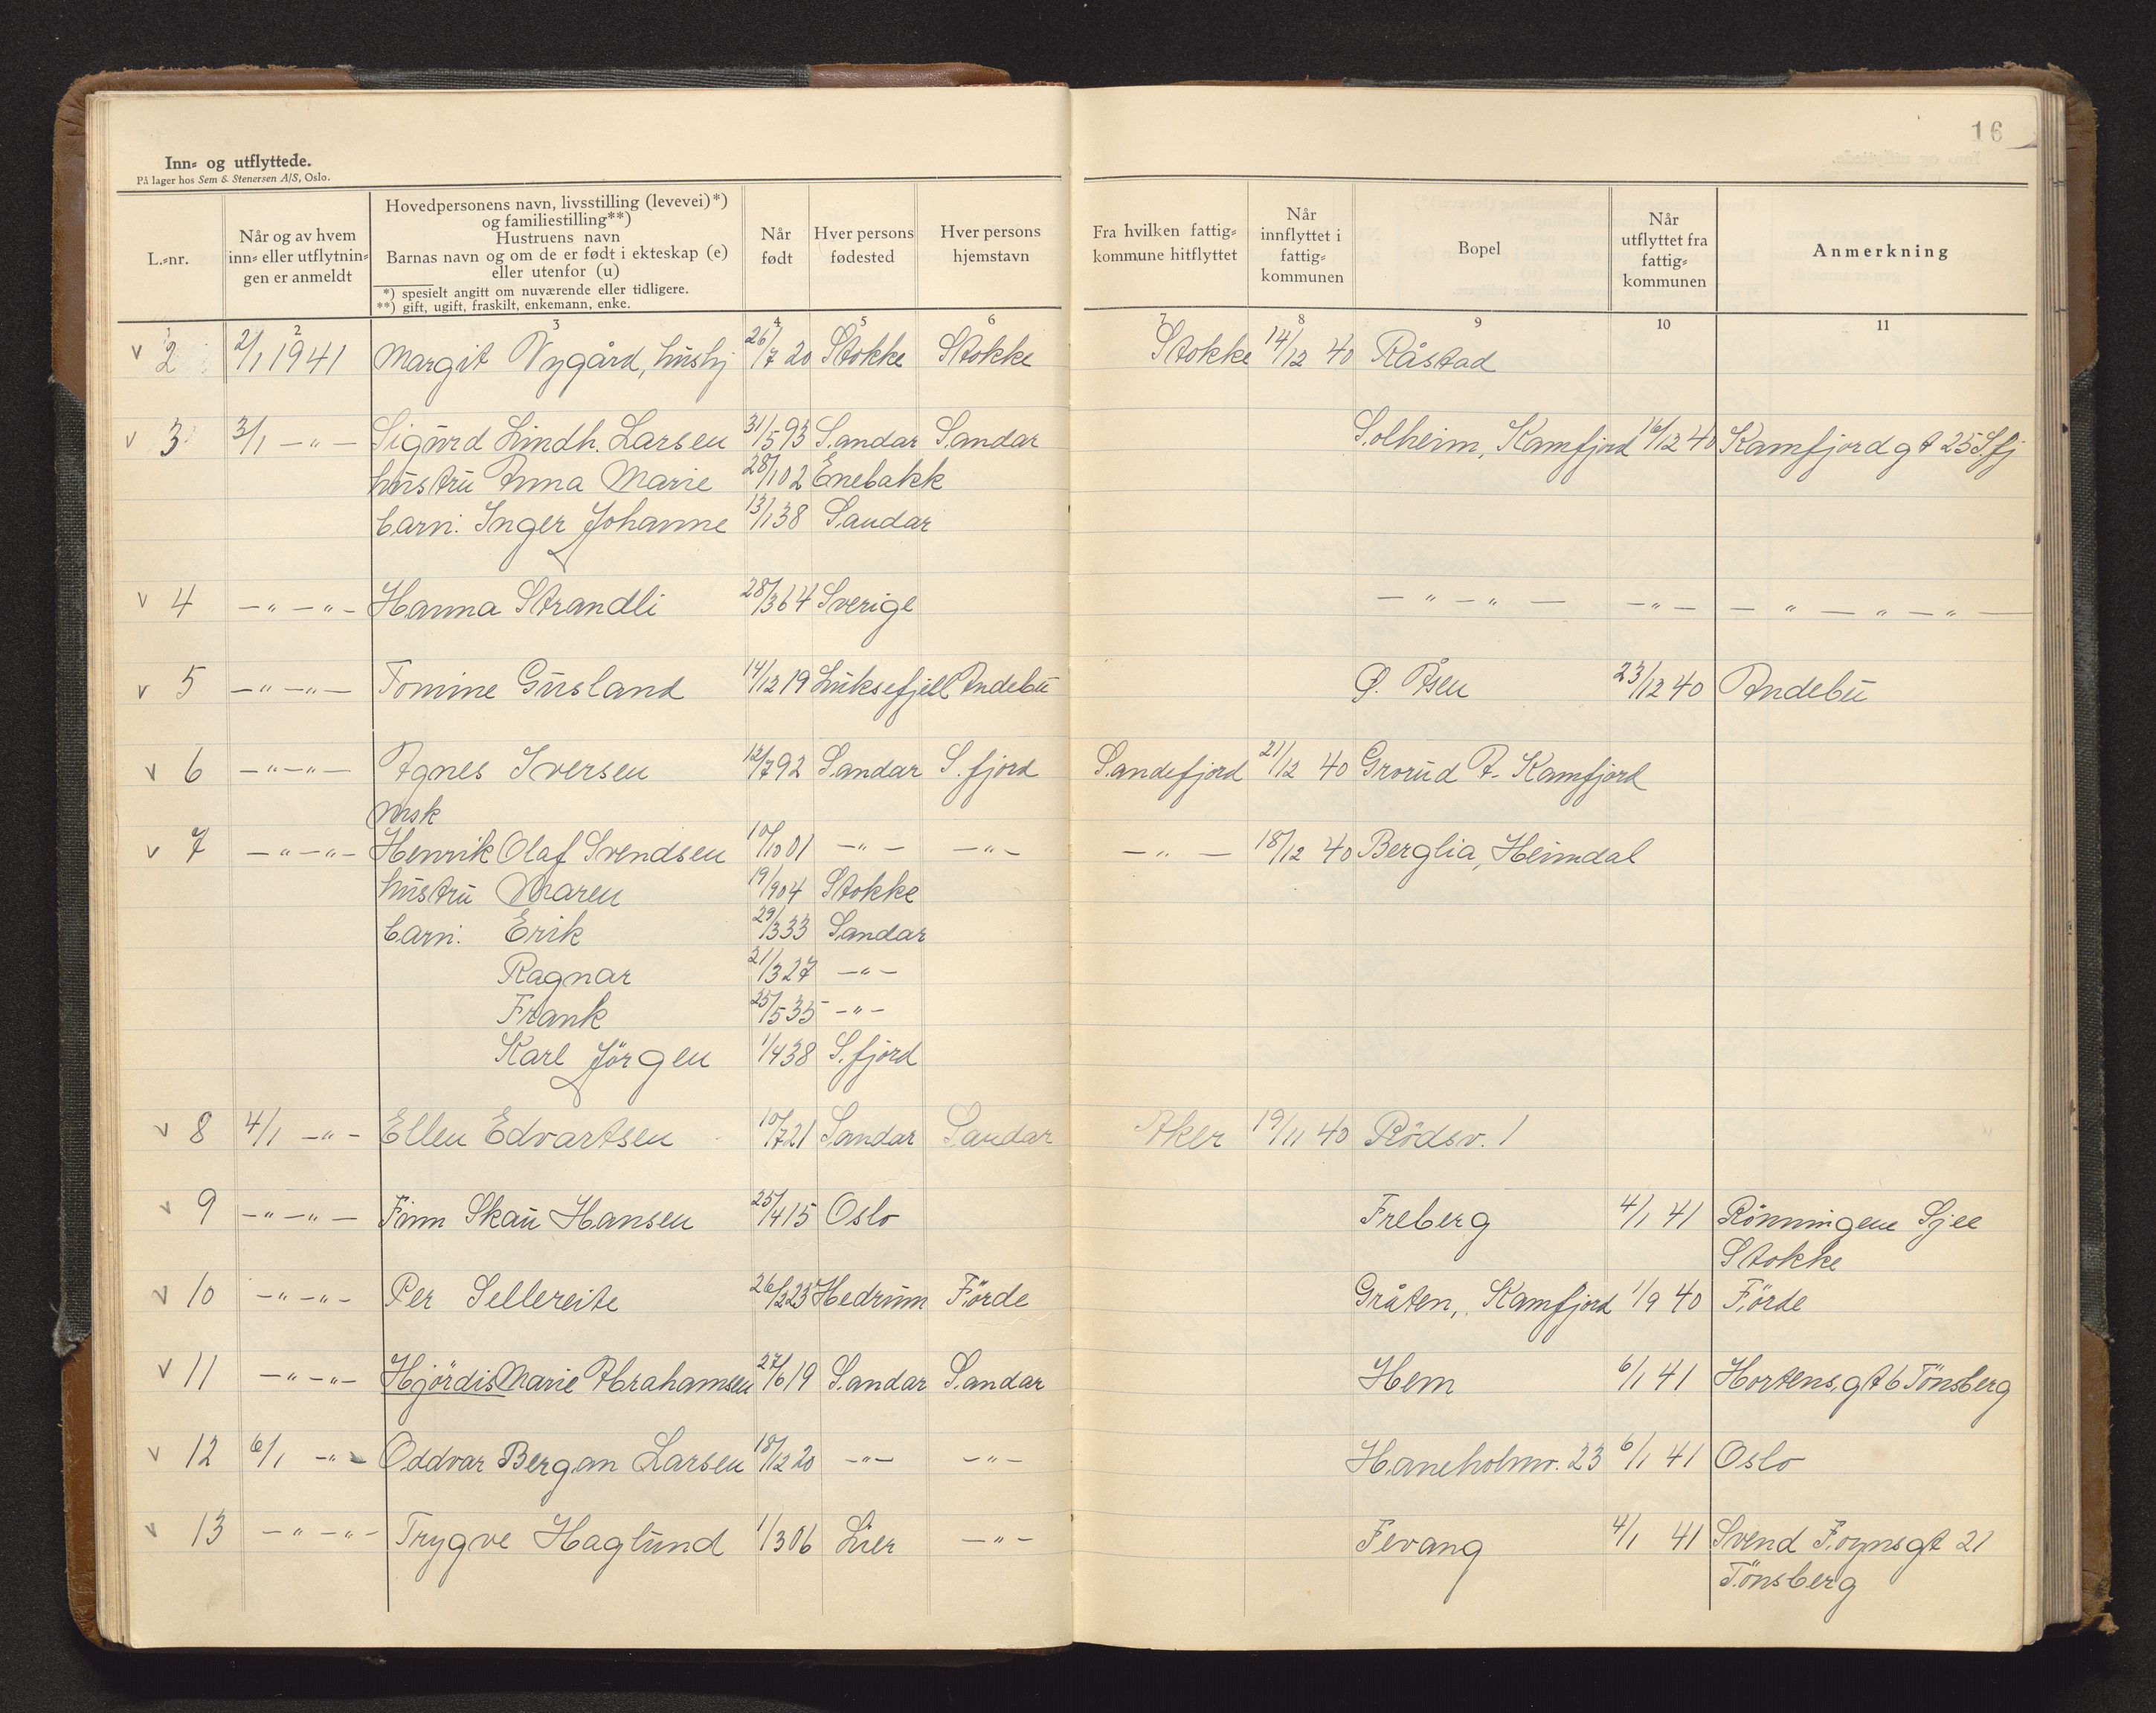 16
Inn- og utflyttede.
På lager hos Sem & Stenersen A/S, Oslo.
L.-nr.
Når og av hvem inn- eller utflytningen er anmeldt
Hovedpersonens navn, livsstilling (levevei)*)
og familiestilling**)
Hustruens navn
Barnas navn og om de er født i ekteskap (e)
eller utenfor (u)
*) spesielt angitt om nuværende eller tidligere.
**) gift, ugift, fraskilt, enkemann, enke.
Når født
Hver persons fødested
Hver persons hjemstavn
Fra hvilken fattigkommune hitflyttet
Når innflyttet i fattigkommunen
Bopel
Når utflyttet fra fattigkommunen
Anmerkning
1 2 3 4 5 6 7 8 9 10 11
v 2 2/1 1941 Margit Nygård, hushj 26/7 20 Stokke Stokke Stokke 14/12 40 Råstad
v 3 3/1 -"- Sigurd Lindh. Larsen 31/5 93 Sandar Sandar Solheim, Kamfjord 16/12 40 Kamfjordgt 25 S.fj
hustru Anna Marie 28/1 02 Enebakk
barn: Inger Johanne 13/1 38 Sandar
v 4 -"-"- Hanna Strandli 28/3 64 Sverige -"-"- -"- -"-"-"-
v 5 -"-"- Tomine Gusland 14/12 19 Luksefjell Andebu Ø. Åsen 23/12 40 Andebu
v 6 -"-"- Agnes Iversen 12/7 92 Sandar S.fjord Sandefjord 21/12 40 Grorud P. Kamfjord
msk
v 7 -"-"- Henrik Olaf Svendsen 10/10 01 -"- -"- -"- 18/12 40 Berglia, Heimdal
hustru Maren 19/9 04 Stokke
barn: Erik 29/3 33 Sandar
Ragnar 21/3 27 -"-
Frank 25/5 35 -"-
Karl Jörgen 1/4 38 S.fjord
v 8 4/1 -"- Ellen Edvartsen 10/7 21 Sandar Sandar Aker 19/11 40 Rödsv. 1
v 9 -"-"- Finn Skau Hansen 25/4 15 Oslo Freberg 4/1 41 Rönningen Sjee
Stokke
v 10 -"-"- Per Sellereite 26/2 23 Hedrum Förde Gråten, Kamfjord 1/9 40 Förde
v 11 -"-"- Hjördis Marie Abrahamsen 27/6 19 Sandar Sandar Hem 6/1 41 Hortens.gt 6 Tönsberg
v 12 6/1 -"- Oddvar Bergan Larsen 18/12 20 -"- -"- Haneholmv. 23 6/1 41 Oslo
v 13 -"-"- Trygve Haglund 1/3 06 Lier -"- Fevang 4/1 41 Svend Foynsgt 21
Tönsberg